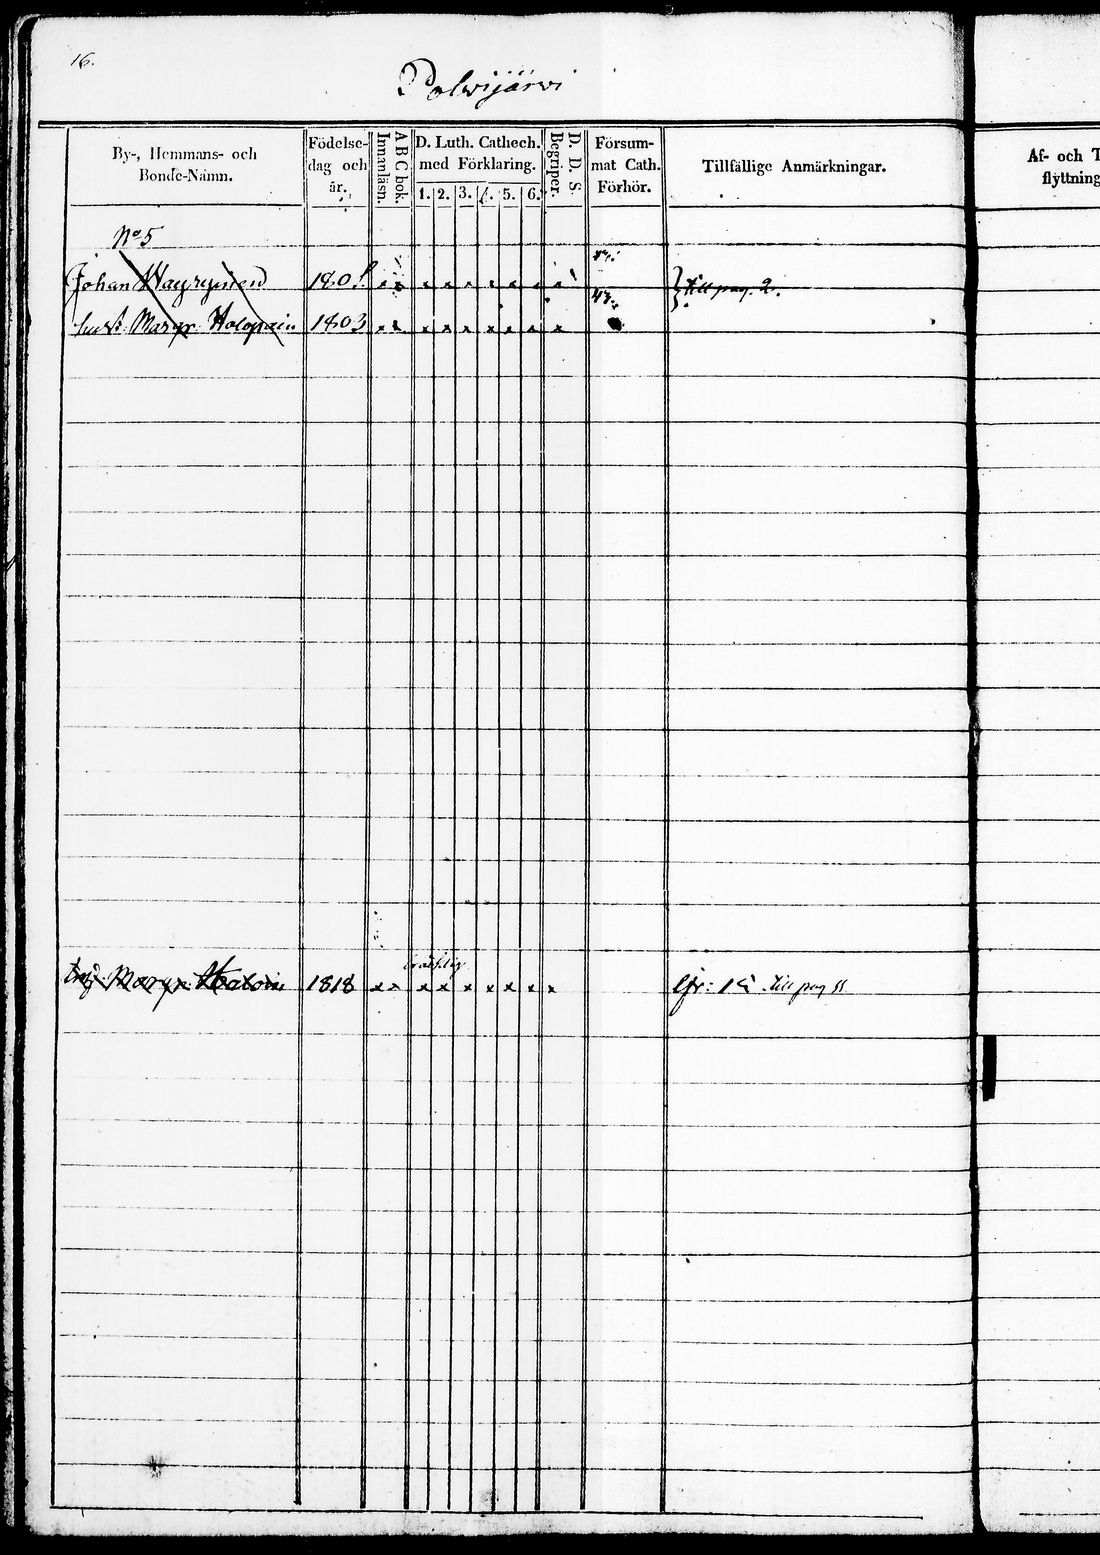 16.
Polvijärvi
By-, Hemmans- och
Bonde-Namn.
Födelse-
dag och
år.
A B C bok.
Innanläsn.
D. Luth. Cathech.
med Förklaring.
1. 2. 3. 4. 5. 6.
D. D. S.
Begriper.
Försum-
mat Cath.
Förhör.
Tillfällige Anmärkningar.
Af- och T
flyttning
No 5
Johan Wäyrynen 180 x x x x x x x x x till pag. 2.
43.
hust. Margr. Holopain 1803 x x x x x x x x x
1818 x x x x x x x x x till pag